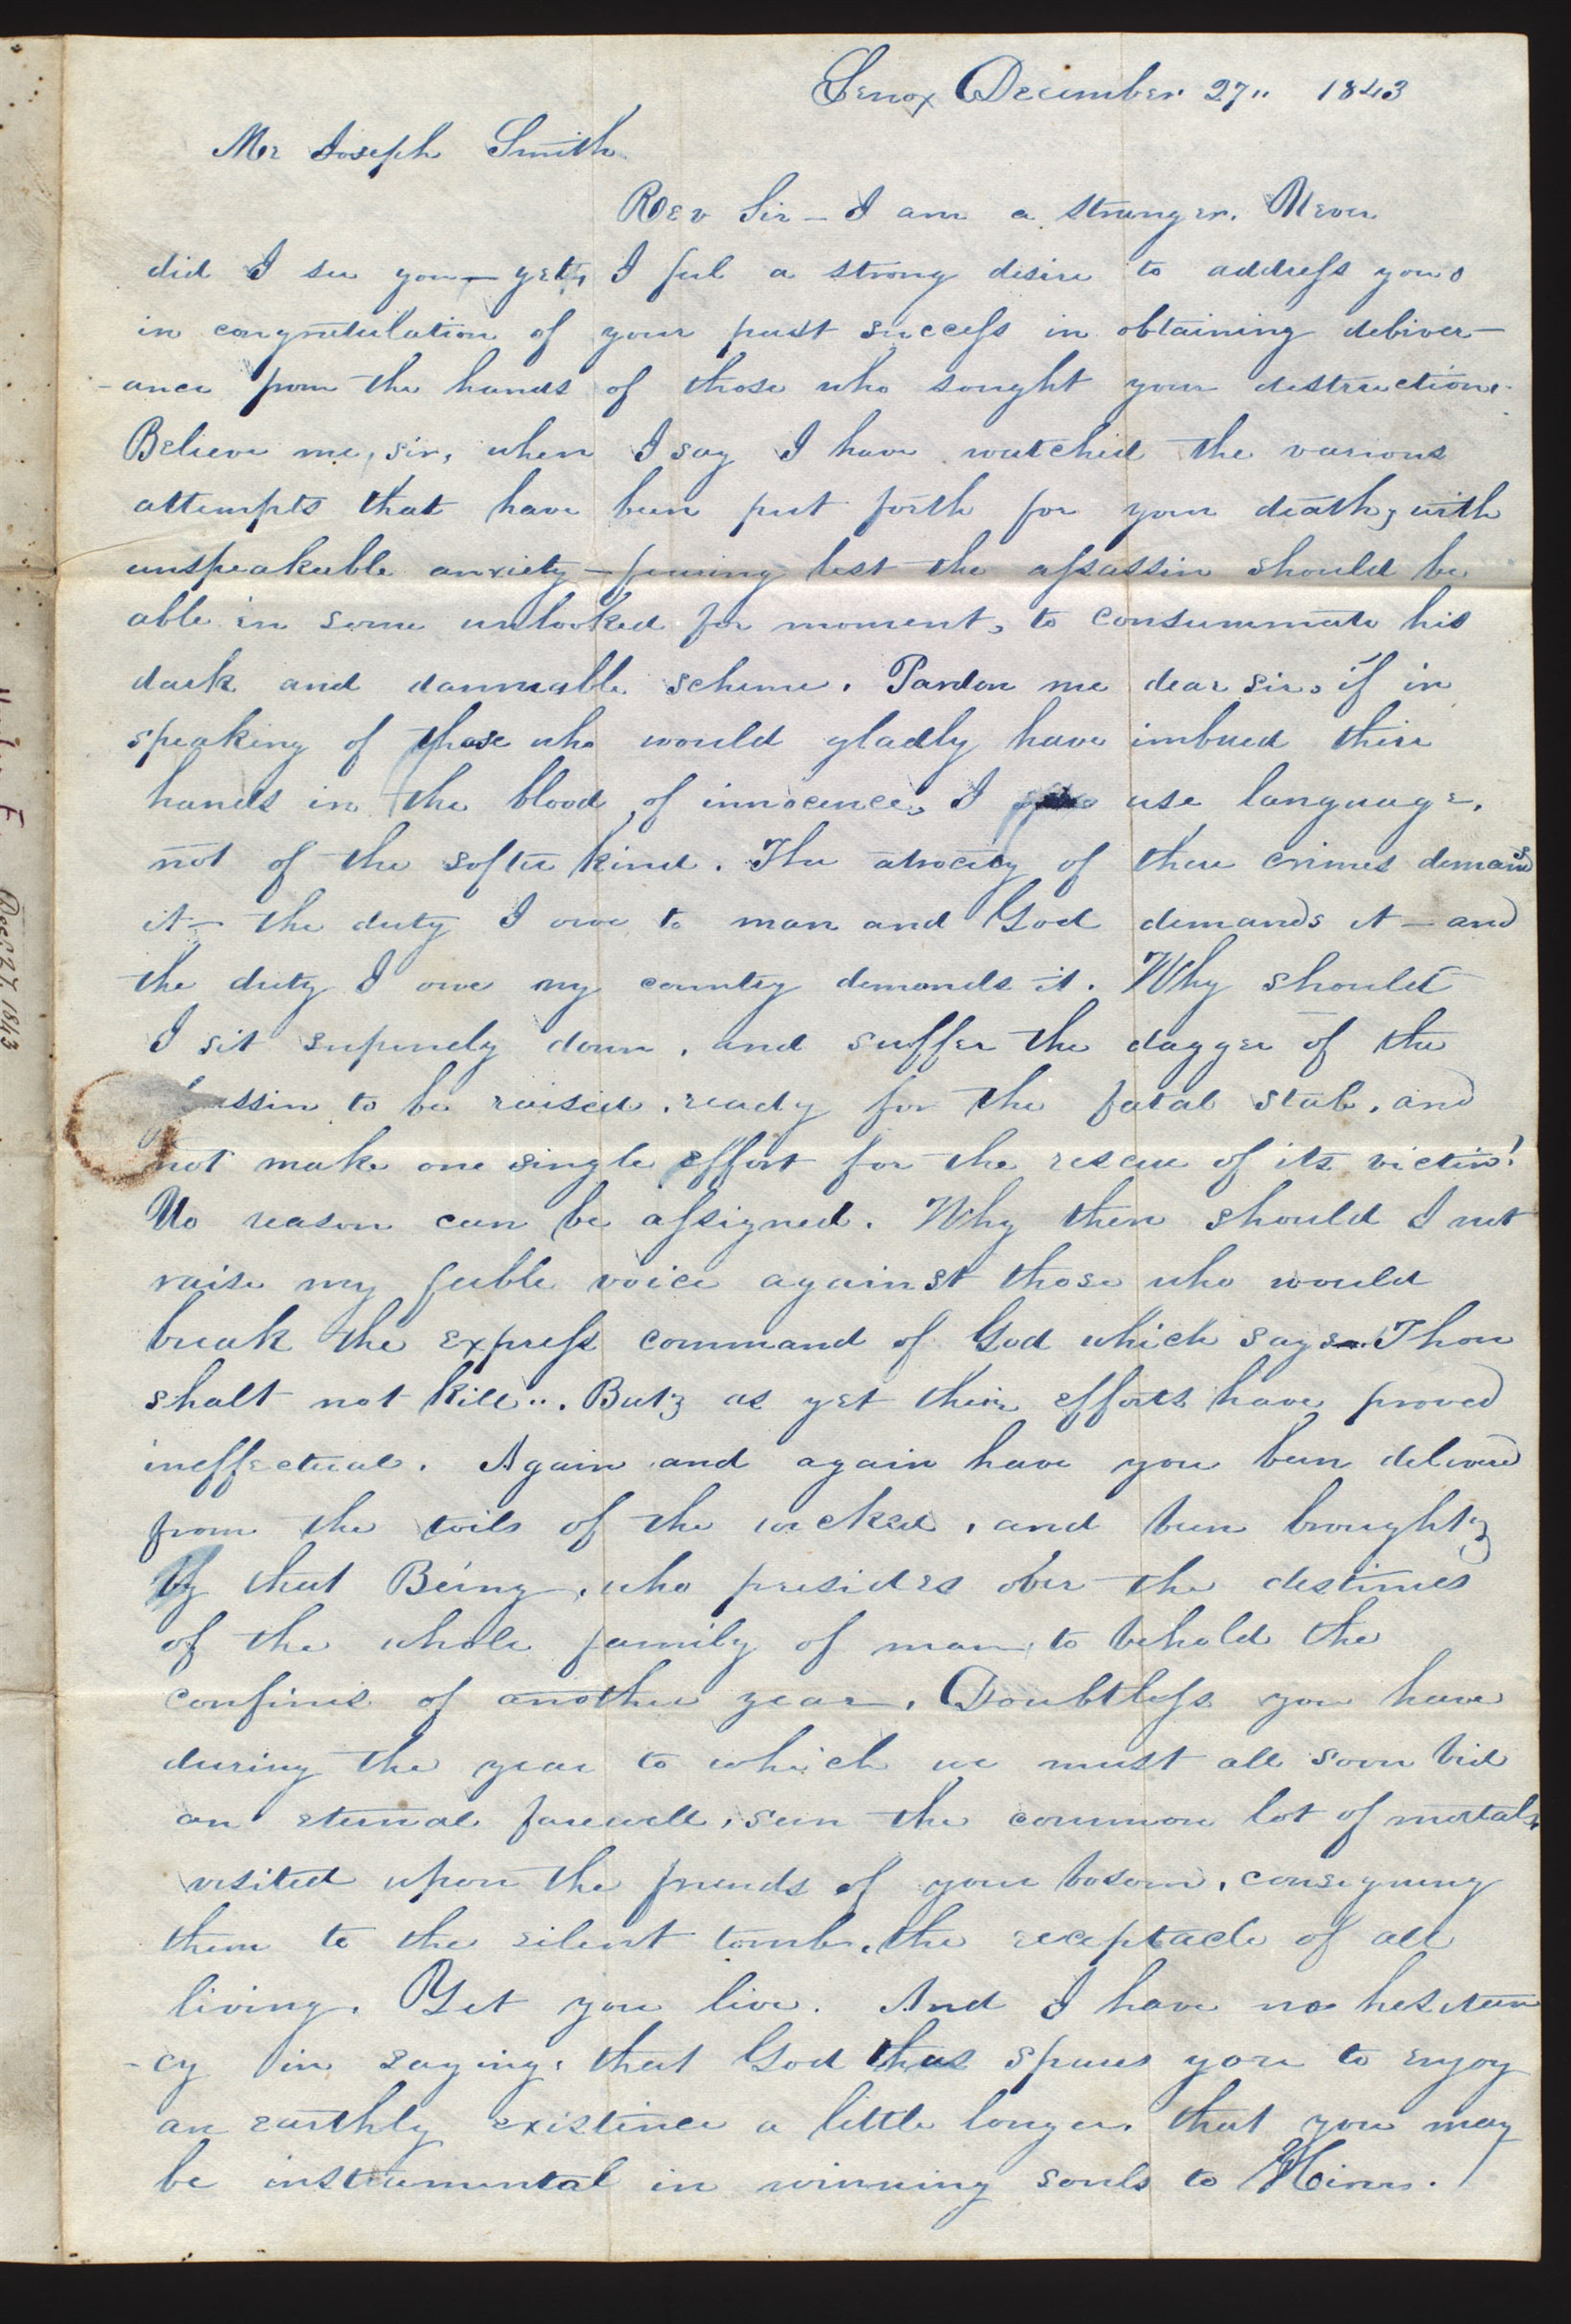 Lenox December 27,, 1843
Mr Joseph Smith
Rev Sir — I am a stranger. Never
did I see you — yet, I feel a strong desire to address you
in congratulation of your past success in obtaining deliver-
-ance from the hands of those who sought your destruction.
Believe me, sir, when I say I have watched the various
attempts that have been put forth for your death, with
unspeakable anxiety — fearing lest the assassin should be
able in some unlooked for moment, to consummate his
dark and damnable scheme. Pardon me dear sir, if in
speaking of those who would gladly have imbued their
hands in the blood of innocence, I use language,
not of the softer kind. The atrocity of there crimes demands
it — the duty I owe to man and God demands it — and
the duty I owe my country demands it. Why should
I sit supinely down, and suffer the dagger of the
assin to be raised, ready for the fatal stab, and
not make one single effort for the rescue of its victim!
No reason can be assigned. Why then should I not
raise my feeble voice against those who would
break the express command of God which says Thou
shalt not kill". But, as yet their efforts have proved
ineffectual. Again and again have you been delivered
from the toils of the wicked, and been brought,
by that Being, who presides over the destinies
of the whole family of man, to behold the
confines of another year. Doubtless you have
during the year to which we must all soon bid
an eternal farewell, seen the common lot of mortals,
visited upon the friends of your bosom, consigning
them to the silent tomb, the receptacle of all
living. Yet you live. And I have no hesitan
-cy in saying, that God thus spares you to enjoy
an earthly existence a little longer, that you may
be instrumental in winning souls to Him.
Dec. 27, 1843